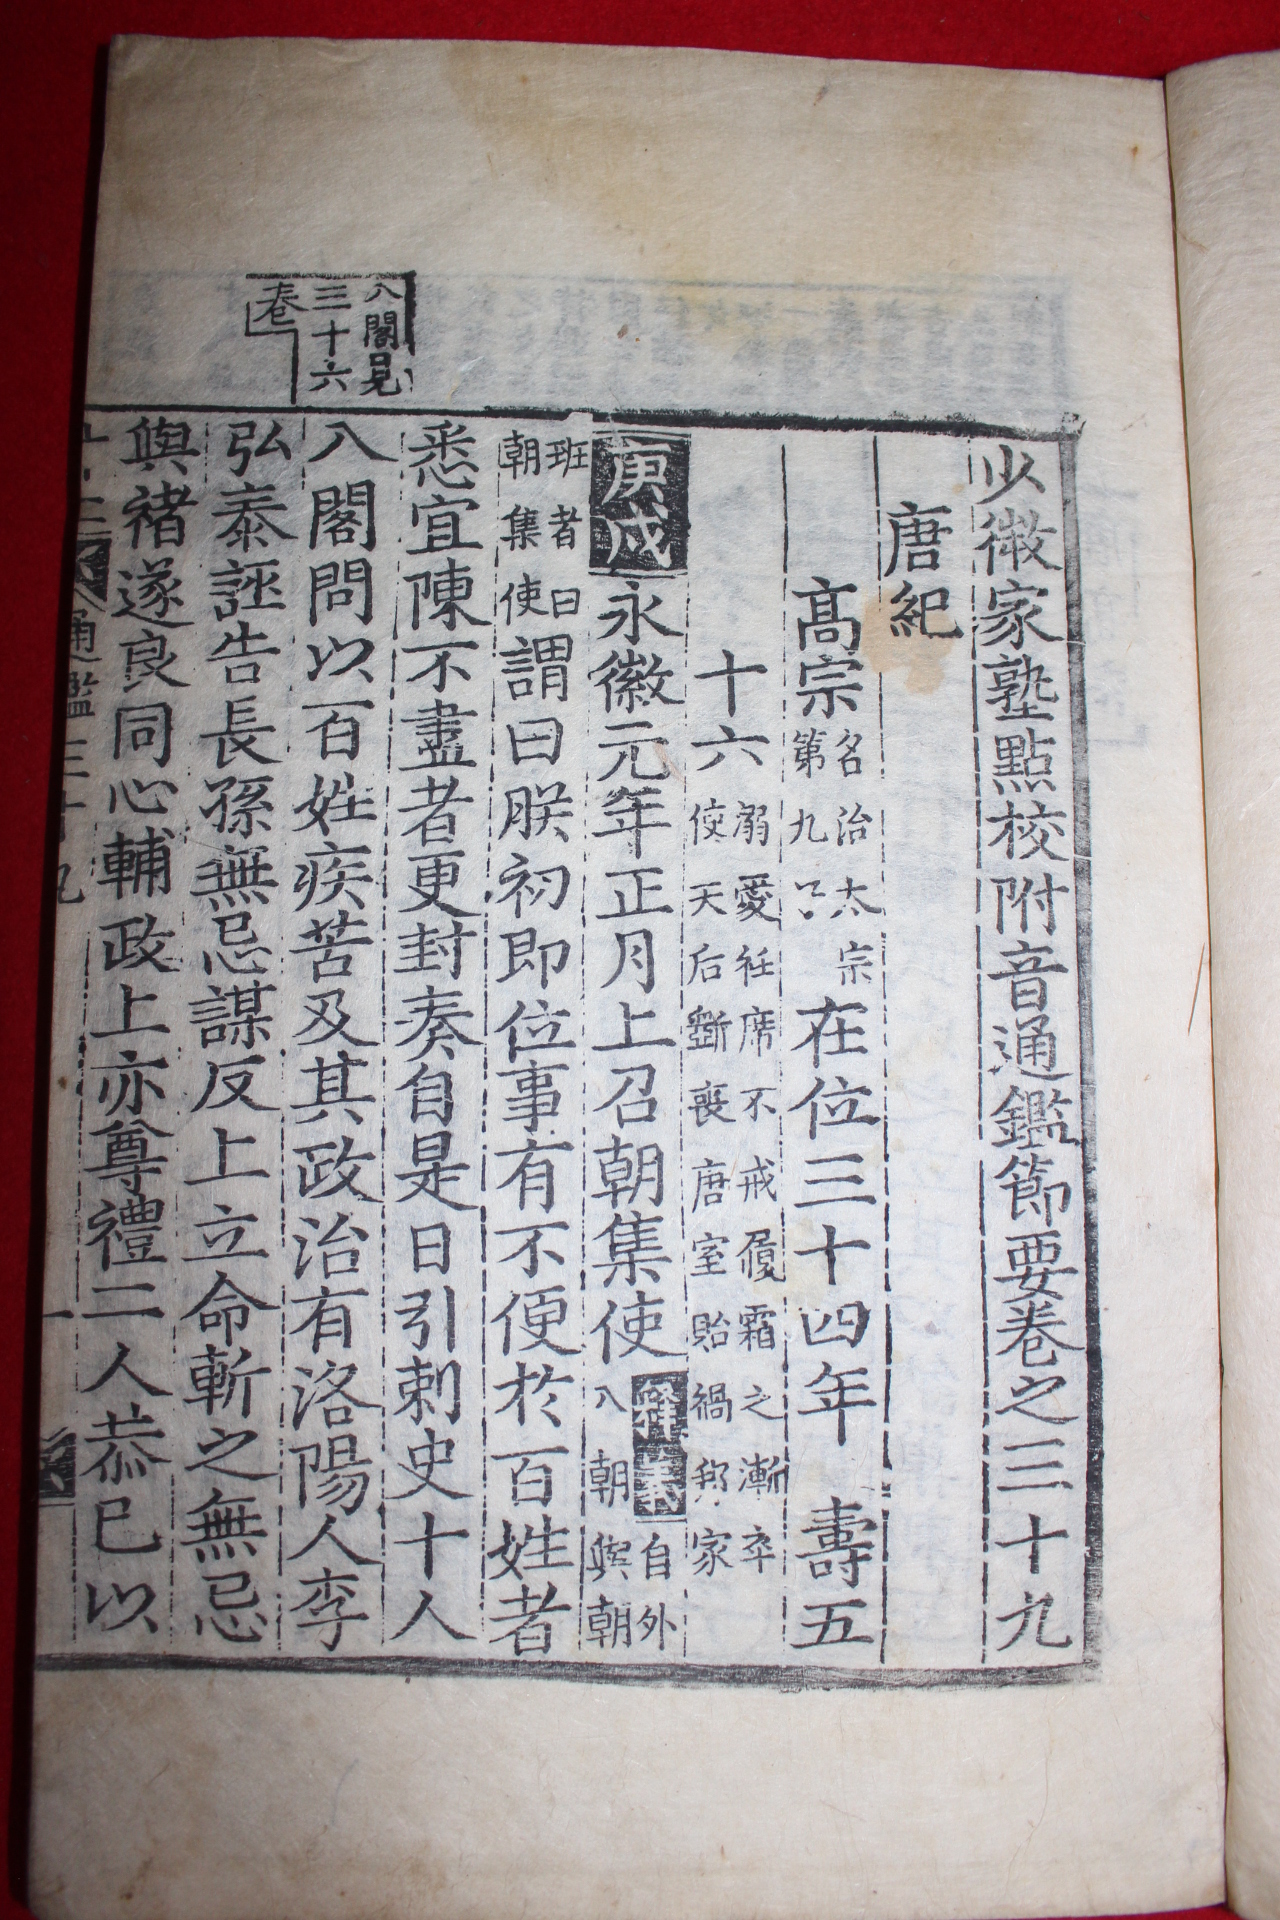 少微家塾點校附音通鑑節要卷之三十九
唐紀
高宗名治太宗第九子在位三十四年 壽五
十六溺愛衽席不戒履霜之漸卒使天后斲喪唐室貽禍邦家
庚戌永徽元年正月上召朝集使釋義自外入朝與朝
班者曰朝集使謂曰朕初即位事有不便於百姓者
悉宜陳不盡者更封奏自是日引刺史十人
入閤問以百姓疾苦及其政治有洛陽人李
弘泰誣告長孫無忌謀反上立命斬之無忌
與褚遂良同心輔政上亦尊禮二人恭已以
入閤見
三十六
卷
通鑑三十九 一